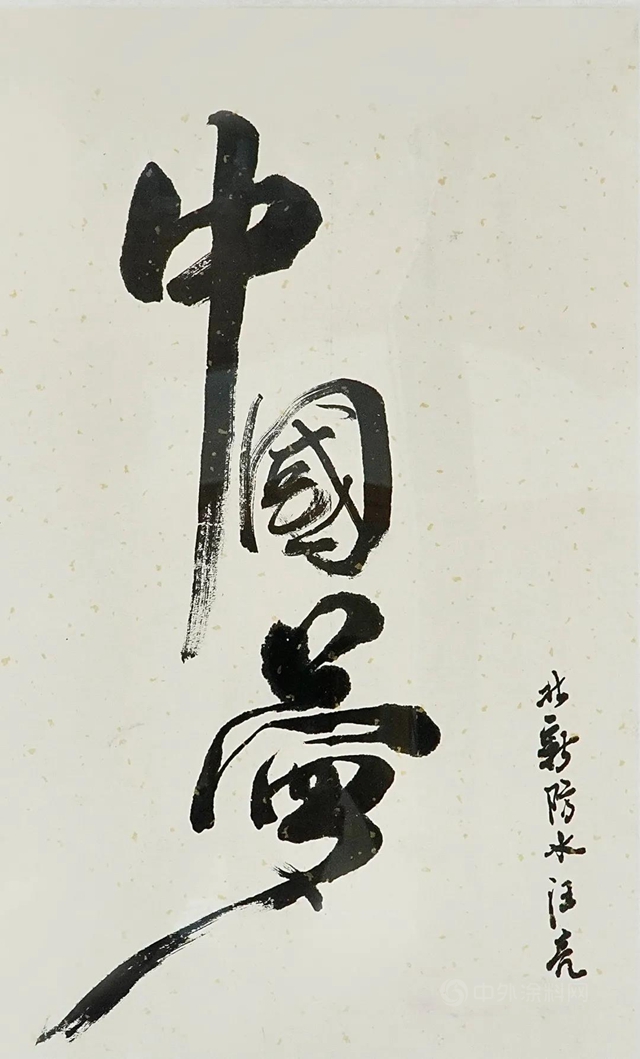 中國夢
北新防水汪亮
中外涂料网